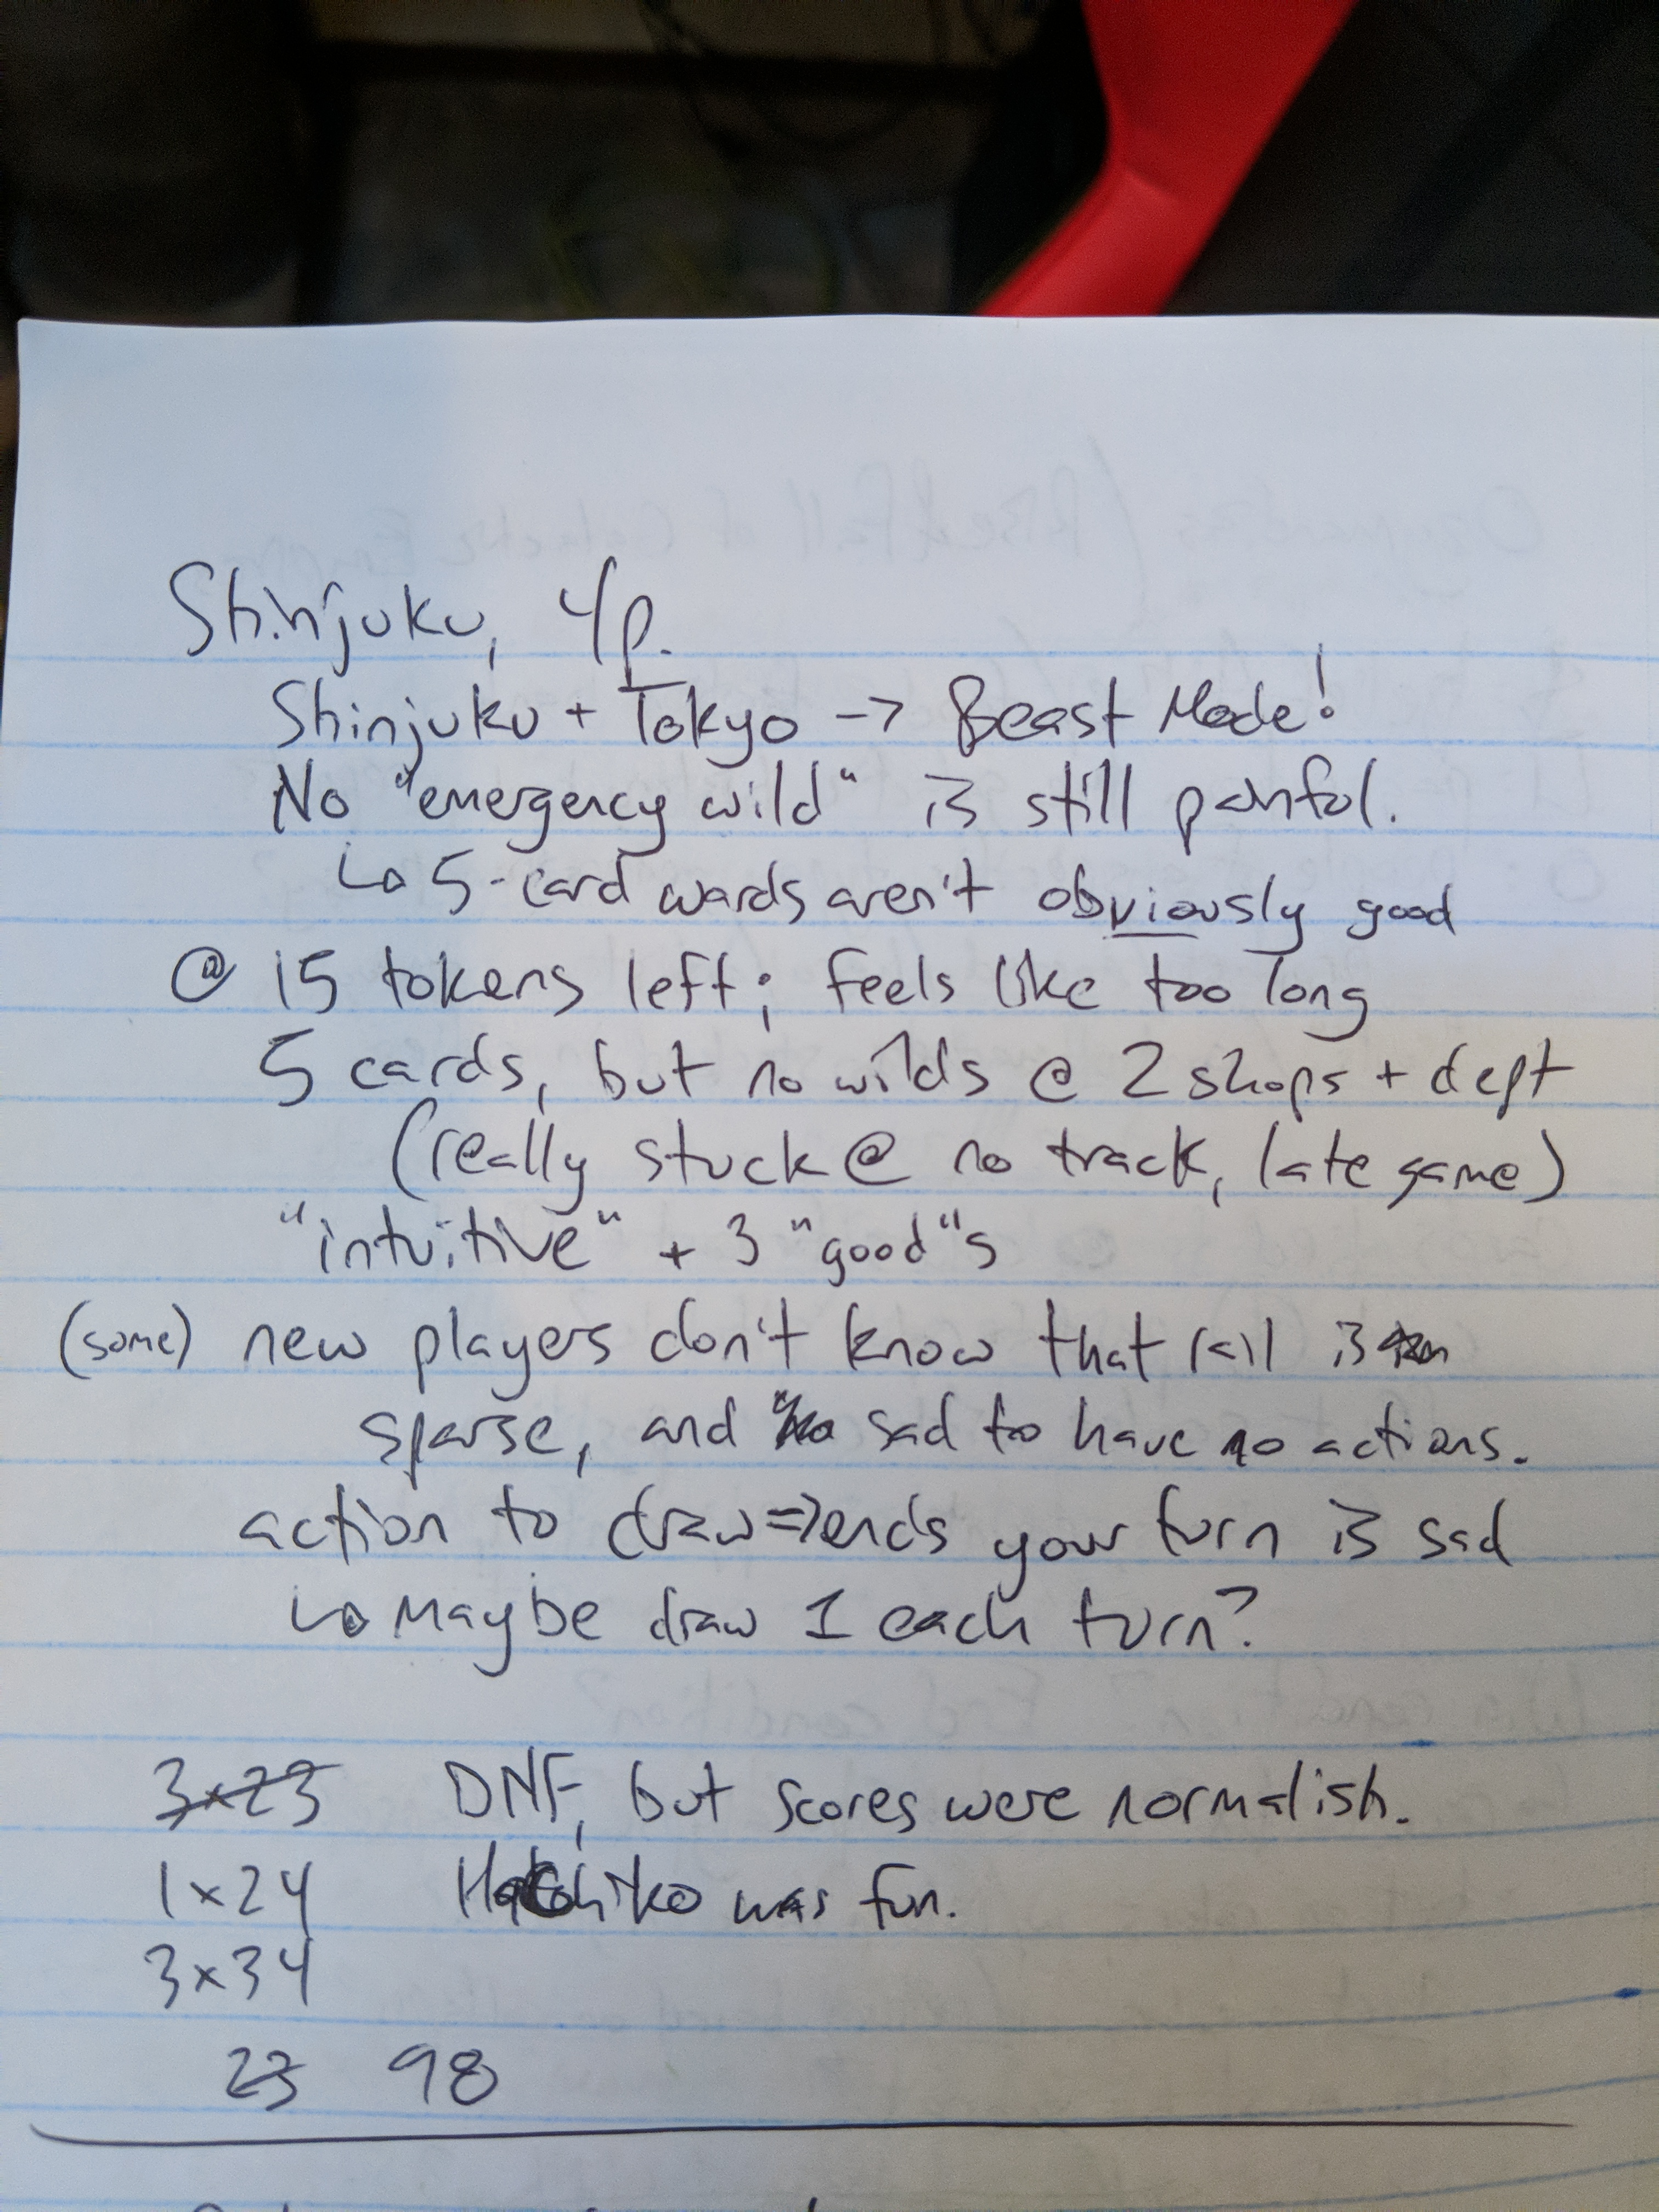 Shinjuku, 4p.
Shinjuku + Tokyo -> Beast Mode!
No "emergency wild" is still painful.
↳ 5-card wards aren't obviously good
@ 15 tokens left; feels like too long
5 cards, but no wilds @ 2 shops + dept
(really stuck @ no track, late game)
"intuitive" + 3 "good"s
(some) new players don't know that rail is
sparse, and sad to have no actions.
action to draw => ends your turn is sad
↳ Maybe draw 1 each turn?
3x23 DNF, but scores were normalish.
1x24 Hachiko was fun.
3x34
23 98